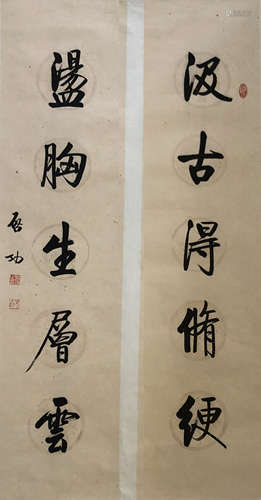 汲古得脩綆
盪胸生層雲
啟功